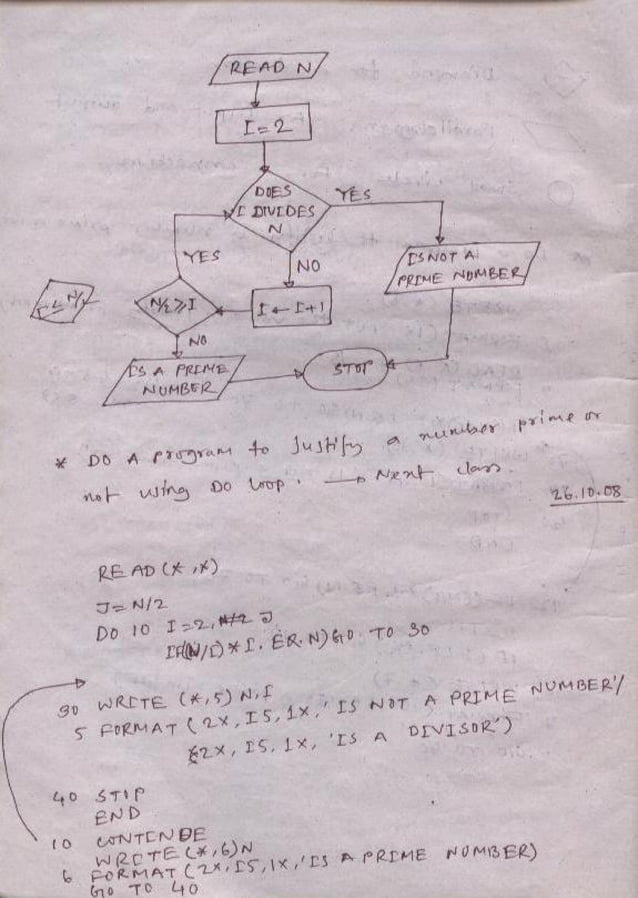 READ N
I=2
DOES
I DIVIDES
N
YES
NO
IS NOT A
PRIME NUMBER
YES
N/2 ≥ I
I ← I+1
NO
IS A PRIME
NUMBER
STOP
* DO A program to Justify a number prime or
not using DO loop. → Next class.
26.10.08
READ (*,*)
J= N/2
DO 10 I=2, J
IF((N/I)*I. ER. N) GO TO 30
30 WRITE (*,5) N,I
5 FORMAT (2X, I5, 1X, 'IS NOT A PRIME NUMBER'/
2X, I5, 1X, 'IS A DIVISOR')
40 STOP
END
10 CONTENDE
WRITE (*,6) N
6 FORMAT (2X, I5, 1X, 'IS A PRIME NUMBER)
GO TO 40